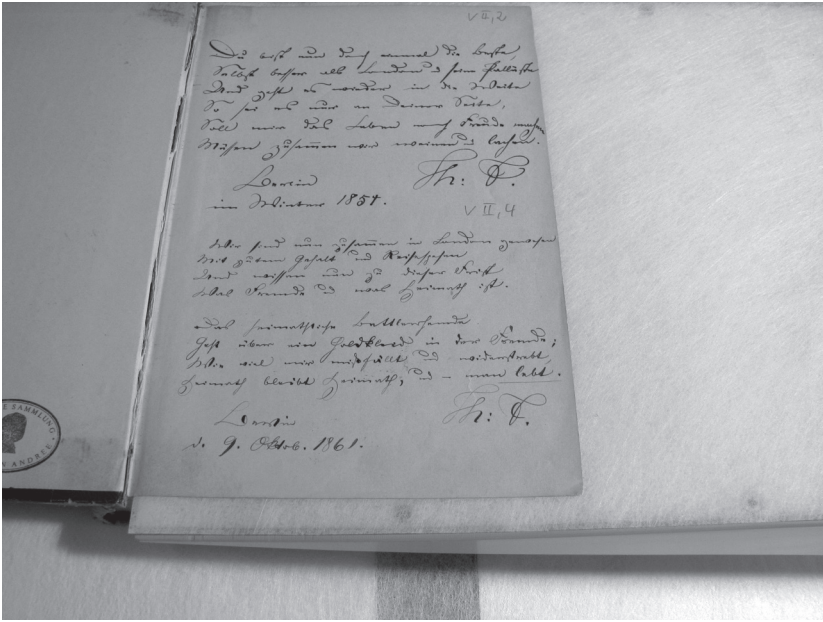 V II, 2
Du bist nun doch einmal die Beste,
Selbst besser als London u seine Palläste
Und geht es wieder in die Weite
So sei es nur an Deiner Seite,
Soll mir das Leben noch Freude machen
Müssen zusammen wir weinen u lachen.
Berlin
im Winter 1857.
Th: F.
V II, 4
Wir sind nun zusammen in London gewesen
Mit gutem Gehalt und Reisespesen
Und wissen nun zu dieser Frist
Was Fremde und was Heimath ist.
Das heimathliche Bettlerhemde
Geht über ein Goldkleid in der Fremde;
Wie viel mir mißfällt und widerstrebt,
Heimath bleibt Heimath, und – man lebt.
Berlin
d. 9. Oktob. 1861.
Th: F.
E SAMMLUNG
N ANDREE